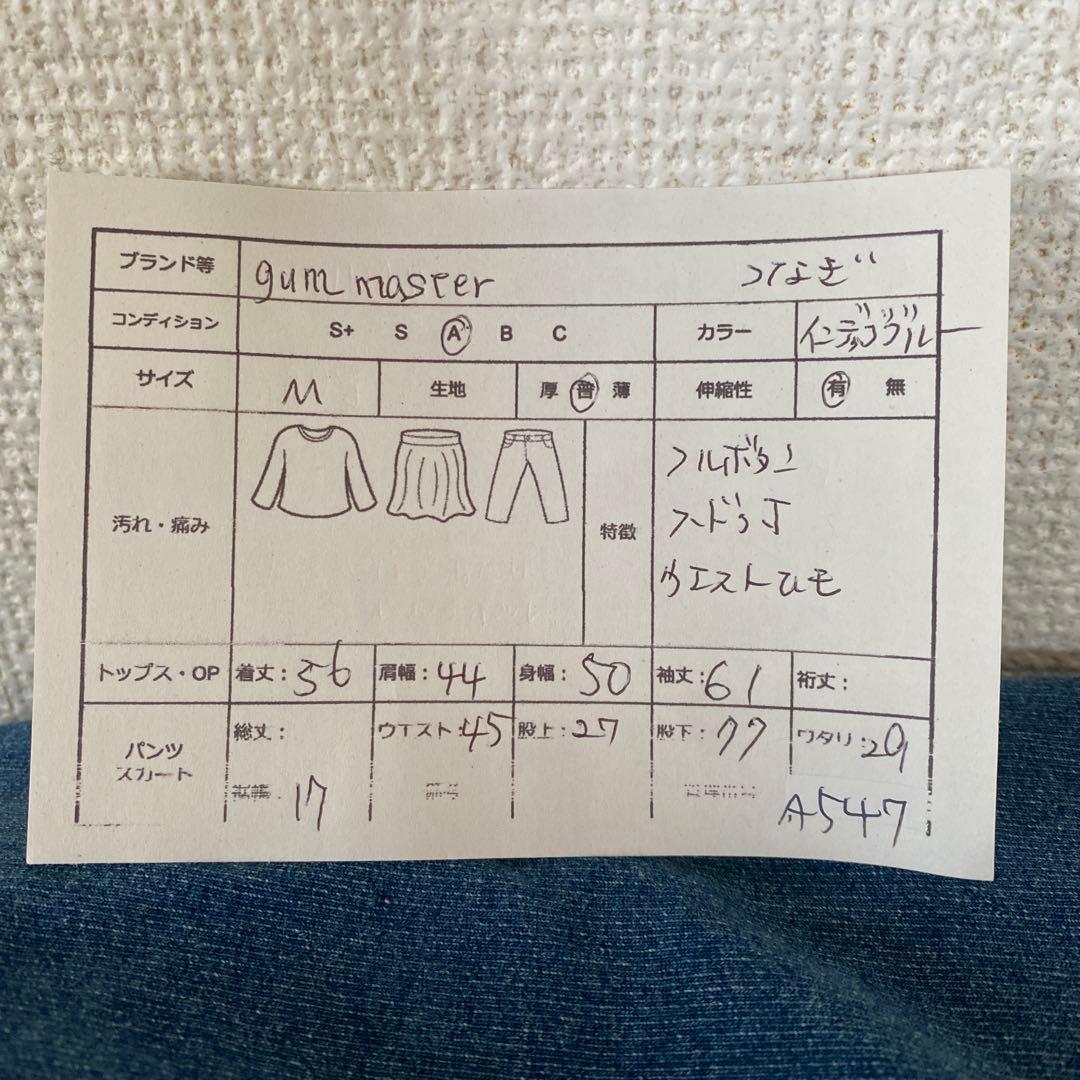 ブランド等 gum master つなぎ
コンディション S+ S A B C カラー インディゴブルー
サイズ M 生地 厚 普 薄 伸縮性 有 無
汚れ・痛み 特徴 フルボタン
ウエストひモ
トップス・OP 着丈：56 肩幅：44 身幅：50 袖丈：61 裄丈：
パンツ スカート 総丈： ウエスト：45 股上：27 股下：77 ワタリ：29
17 A547